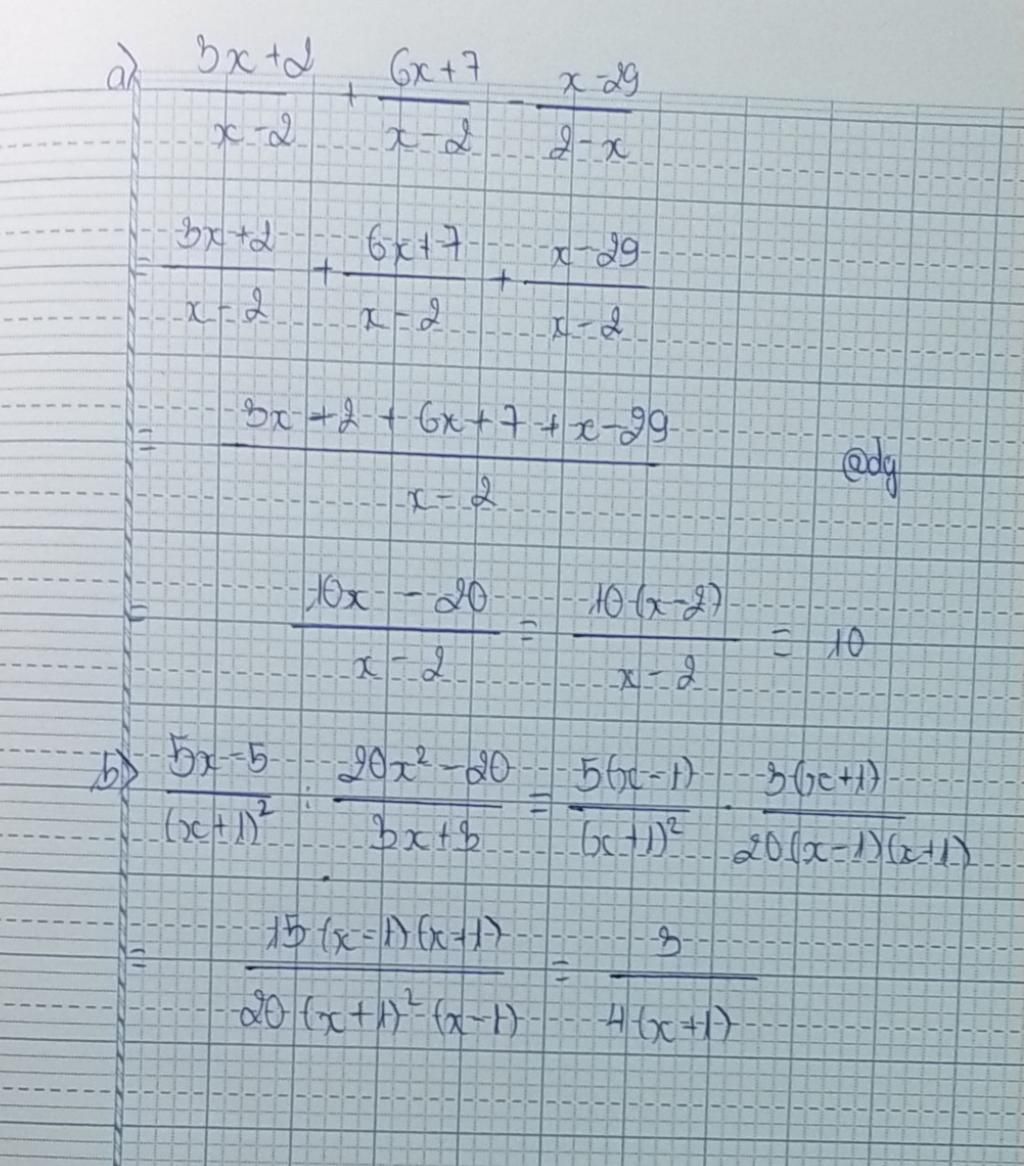 a) \frac{3x+2}{x-2} + \frac{6x+7}{x-2} - \frac{x-29}{2-x}
= \frac{3x+2}{x-2} + \frac{6x+7}{x-2} + \frac{x-29}{x-2}
= \frac{3x+2+6x+7+x-29}{x-2}
@dy
= \frac{10x-20}{x-2} = \frac{10(x-2)}{x-2} = 10
b) \frac{5x-5}{(x+1)^2} : \frac{20x^2-20}{3x+3} = \frac{5(x-1)}{(x+1)^2} \cdot \frac{3(x+1)}{20(x-1)(x+1)}
= \frac{15(x-1)(x+1)}{20(x+1)^2(x-1)} = \frac{3}{4(x+1)}